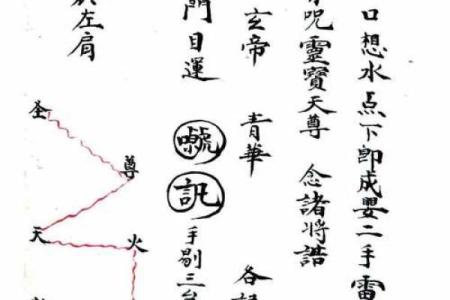 口想水点下即成嬰二手雷
咒靈寶天尊 念諸將誥
玄帝 青華 各
門目運 手剔三
左肩
圣
尊
天
火